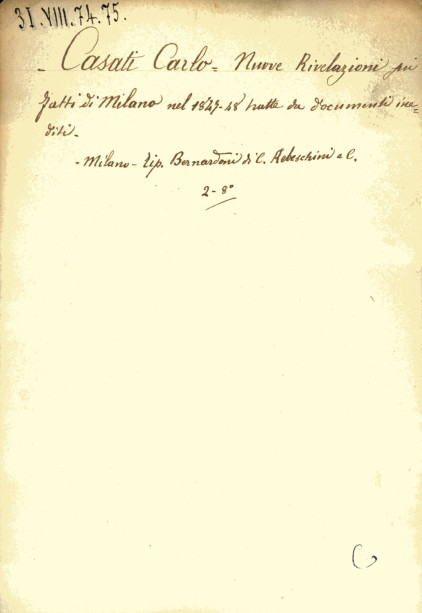 31.VIII.74.75.
- Casati Carlo = Nuove Rivelazioni sui
fatti di Milano nel 1847-48 tratte da documenti ine=
diti -
- Milano - Tip. Bernardoni di C. Rebeschini e C.
2 - 8°